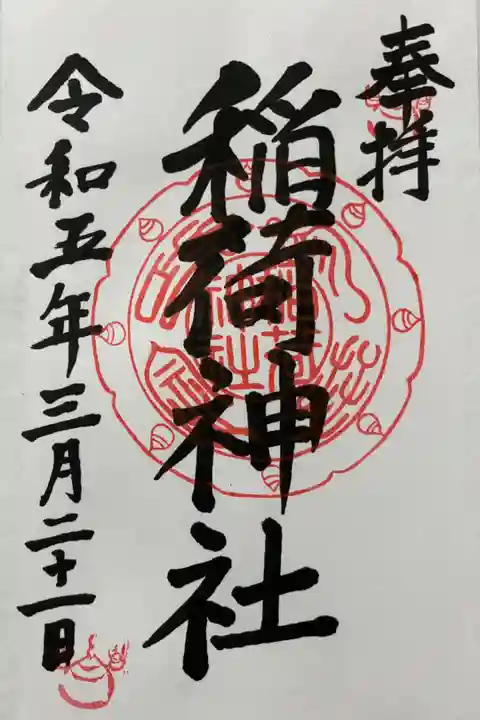 奉拝
稲荷神社
令和五年三月二十一日